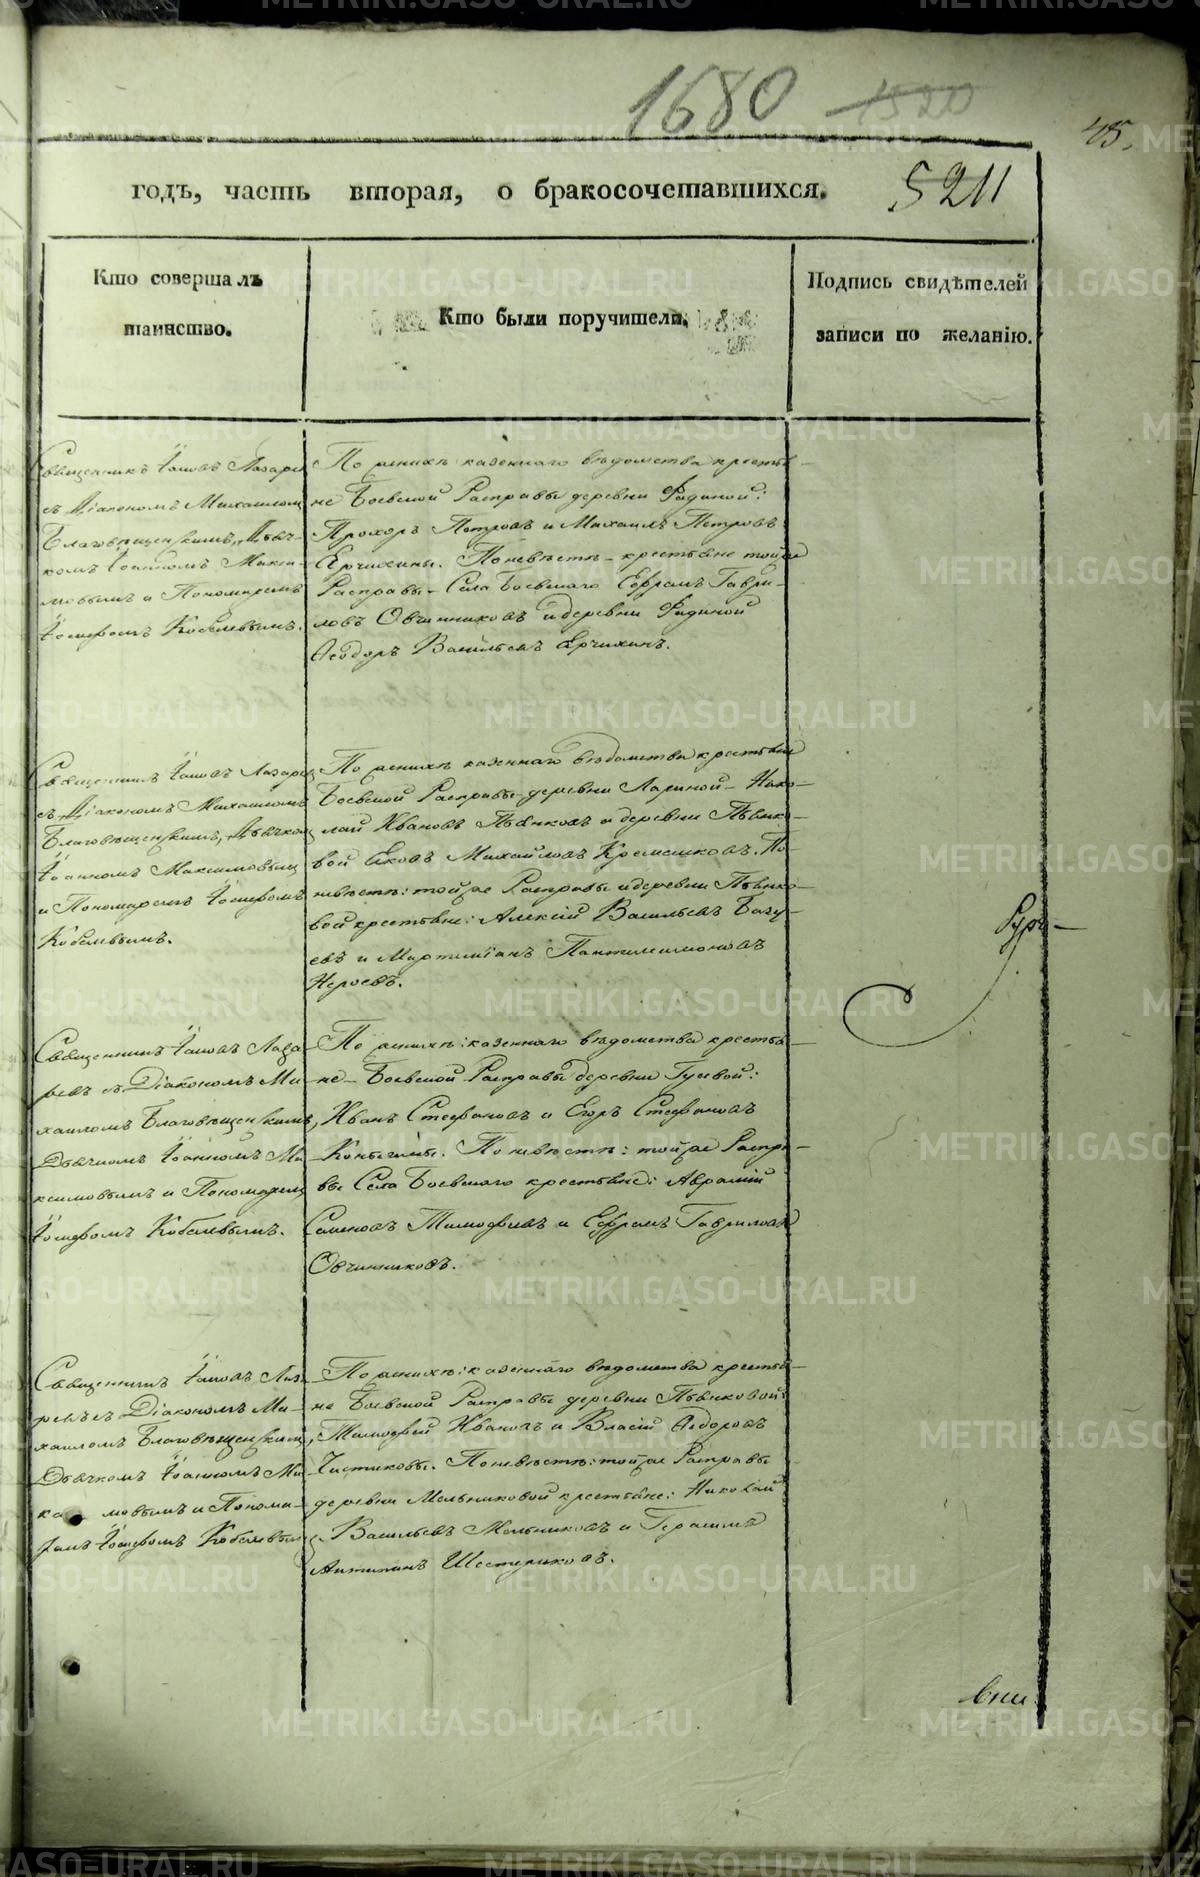 1680 1520
45.
годъ, часть вторая, о бракосочетавшихся. 5211
Кто совершалъ
таинство.
Кто были поручители.
Подпись свидѣтелей
записи по желанію.
Священникъ Іаковъ Лазаре
съ Діакономъ Михаиломъ
Благовѣщенскимъ, Дьяч-
комъ Іоанномъ Макси-
мовымъ и Пономаремъ
Іосифомъ Кобелевымъ.
По женихѣ казеннаго вѣдомства крестья-
не Боевской Расправы деревни
Прохоръ Петровъ и Михаилъ Петровъ
Ерчихины. По невѣстѣ – крестьяне тойже
Расправы – Села Боевскаго Ефремъ Гаври-
ловъ Овчинниковъ и деревни
Ѳеодоръ Васильевъ Ерчихинъ.
Священникъ Іаковъ Лазаре
съ Діакономъ Михаиломъ
Благовѣщенскимъ, Дьячком
Іоанномъ Максимовым
и Пономаремъ Іосифомъ
Кобелевымъ.
По женихѣ казеннаго вѣдомства крестьяне
Боевской Расправы деревни Лариной – Нико-
лай Ивановъ Пьянковъ и деревни Пьянко-
вой Яковъ Михайловъ По
невѣстѣ: тойже Расправы и деревни Пьянко-
вой крестьяне: Алексѣй Васильевъ
евъ и Мартиміанъ Пантилимоновъ
Священникъ Іаковъ Лаза-
ревъ съ Діакономъ Ми-
хаиломъ Благовѣщенскимъ,
Дьячкомъ Іоанномъ Ма
ксимовымъ и Пономарем
Іосифомъ Кобелевымъ.
По женихѣ: казеннаго вѣдомства крестья-
не – Боевской Расправы деревни Гусевой:
Иванъ Стефановъ и Егоръ Стефановъ
По невѣстѣ: тойже Распра-
вы Села Боевскаго крестьяне: Аврамій
Семеновъ Тимофеевъ и Ефремъ Гавриловъ
Овчинниковъ.
Священникъ Іаковъ Лаз
ревъ съ Діакономъ Ми-
хаиломъ Благовѣщенским,
Дьячкомъ Іоанномъ Ма
кс мовымъ и Понома-
ремъ Іосифомъ Кобелевым
По женихѣ: казеннаго вѣдомства крестья-
не Боевской Расправы деревни Пьянковой:
Тимофей Ивановъ и Власій Ѳедоровъ
Чистяковы. По невѣстѣ: тойже Расправы
деревни Мельниковой крестьяне: Николай
Васильевъ Мельниковъ и Герасимъ
Антипинъ Шестериковъ.